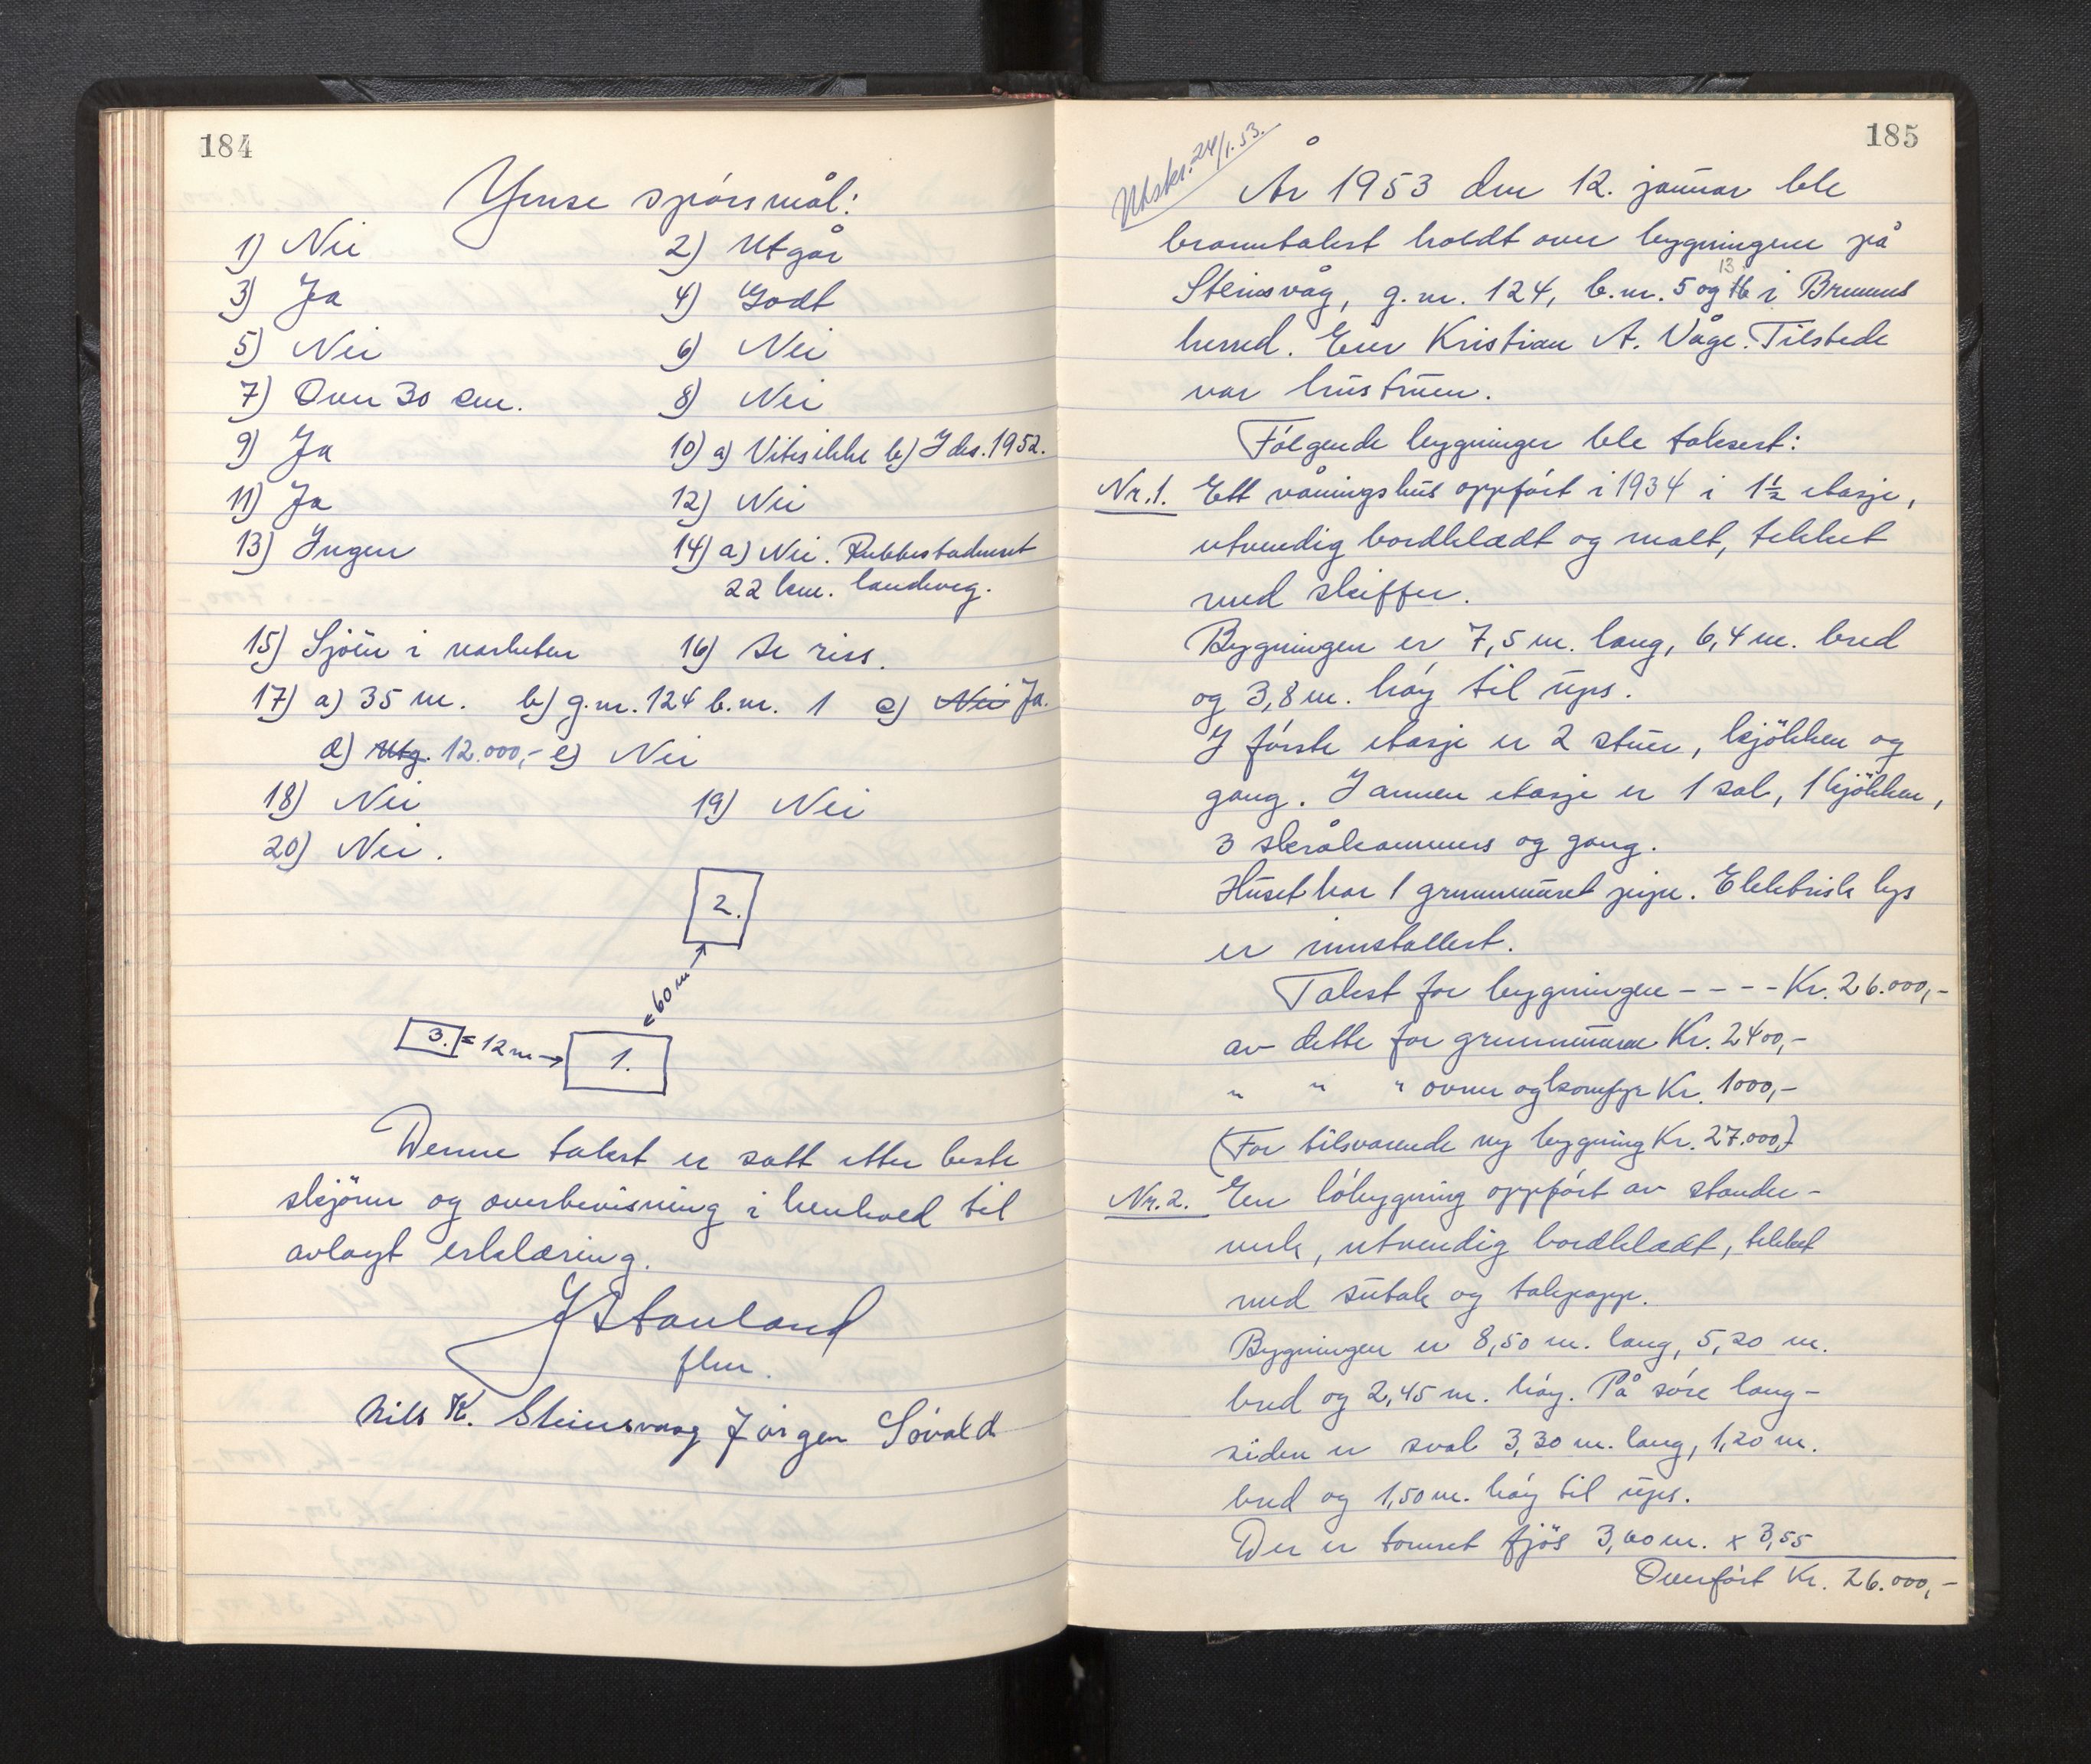 184
Ymse spörsmål:
1) Nei 2) Utgår
3) Ja 4) Godt
5) Nei 6) Nei
7) Over 30 cm. 8) Nei
9) Ja 10) a) Vites ikke b) I des. 1952.
11) Ja 12) Nei
13) Ingen 14) a) Nei. Rubbestadneset
22 km. landeveg.
15) Sjöen i narheten 16) Se riss.
17) a) 35 m. b) g.nr. 124 b.nr. 1 c) Nei Ja.
d) Utg. 12.000,- e) Nei
18) Nei 19) Nei
20) Nei.
2.
60 m
3. 12 m 1.
Denne takst er satt etter beste
skjönn og overbevisning i henhold til
avlagt erklæring.
J Stautland
flm.
Nils K. Steinsvaag Jörgen Sövold
185
Utskr. 24/1. 53.
År 1953 den 12. januar ble
branntakst holdt over bygningene på
Steinsvåg, g.nr. 124, b.nr. 5 og 16 13 i Bremnes
herred. Eier Kristian A. Våge. Tilstede
var hustruen.
Fölgende bygninger ble taksert:
Nr. 1. Ett våningshus oppfört i 1934 i 1½ etasje,
utvendig bordkledt og malt, tekket
med skiffer.
Bygningen er 7,5 m. lang, 6,4 m. bred
og 3,8 m. höy til ups.
I förste etasje er 2 stuer, kjökken og
gang. I annen etasje er 1 sal, 1 kjökken,
3 skråkammers og gang.
Huset har 1 grunnmuret pipe. Elektrisk lys
er innstallert.
Takst for bygningen - - - - Kr. 26.000,-
av dette for grunnmuren Kr. 2400,-
" " " ovner og komfyr Kr. 1000,-
(For tilsvarende ny bygning Kr. 27.000,-)
Nr. 2. En löbygning oppfört av stender-
verk, utvendig bordkledt, tekket
med sutak og takpapp.
Bygningen er 8,50 m. lang, 5,20 m.
bred og 2,45 m. höy. På söre lang-
siden er sval 3,30 m. lang, 1,20 m.
bred og 1,50 m. höy til ups.
Der er tomret fjös 3,60 m. x 3,55
Overfört Kr. 26.000,-